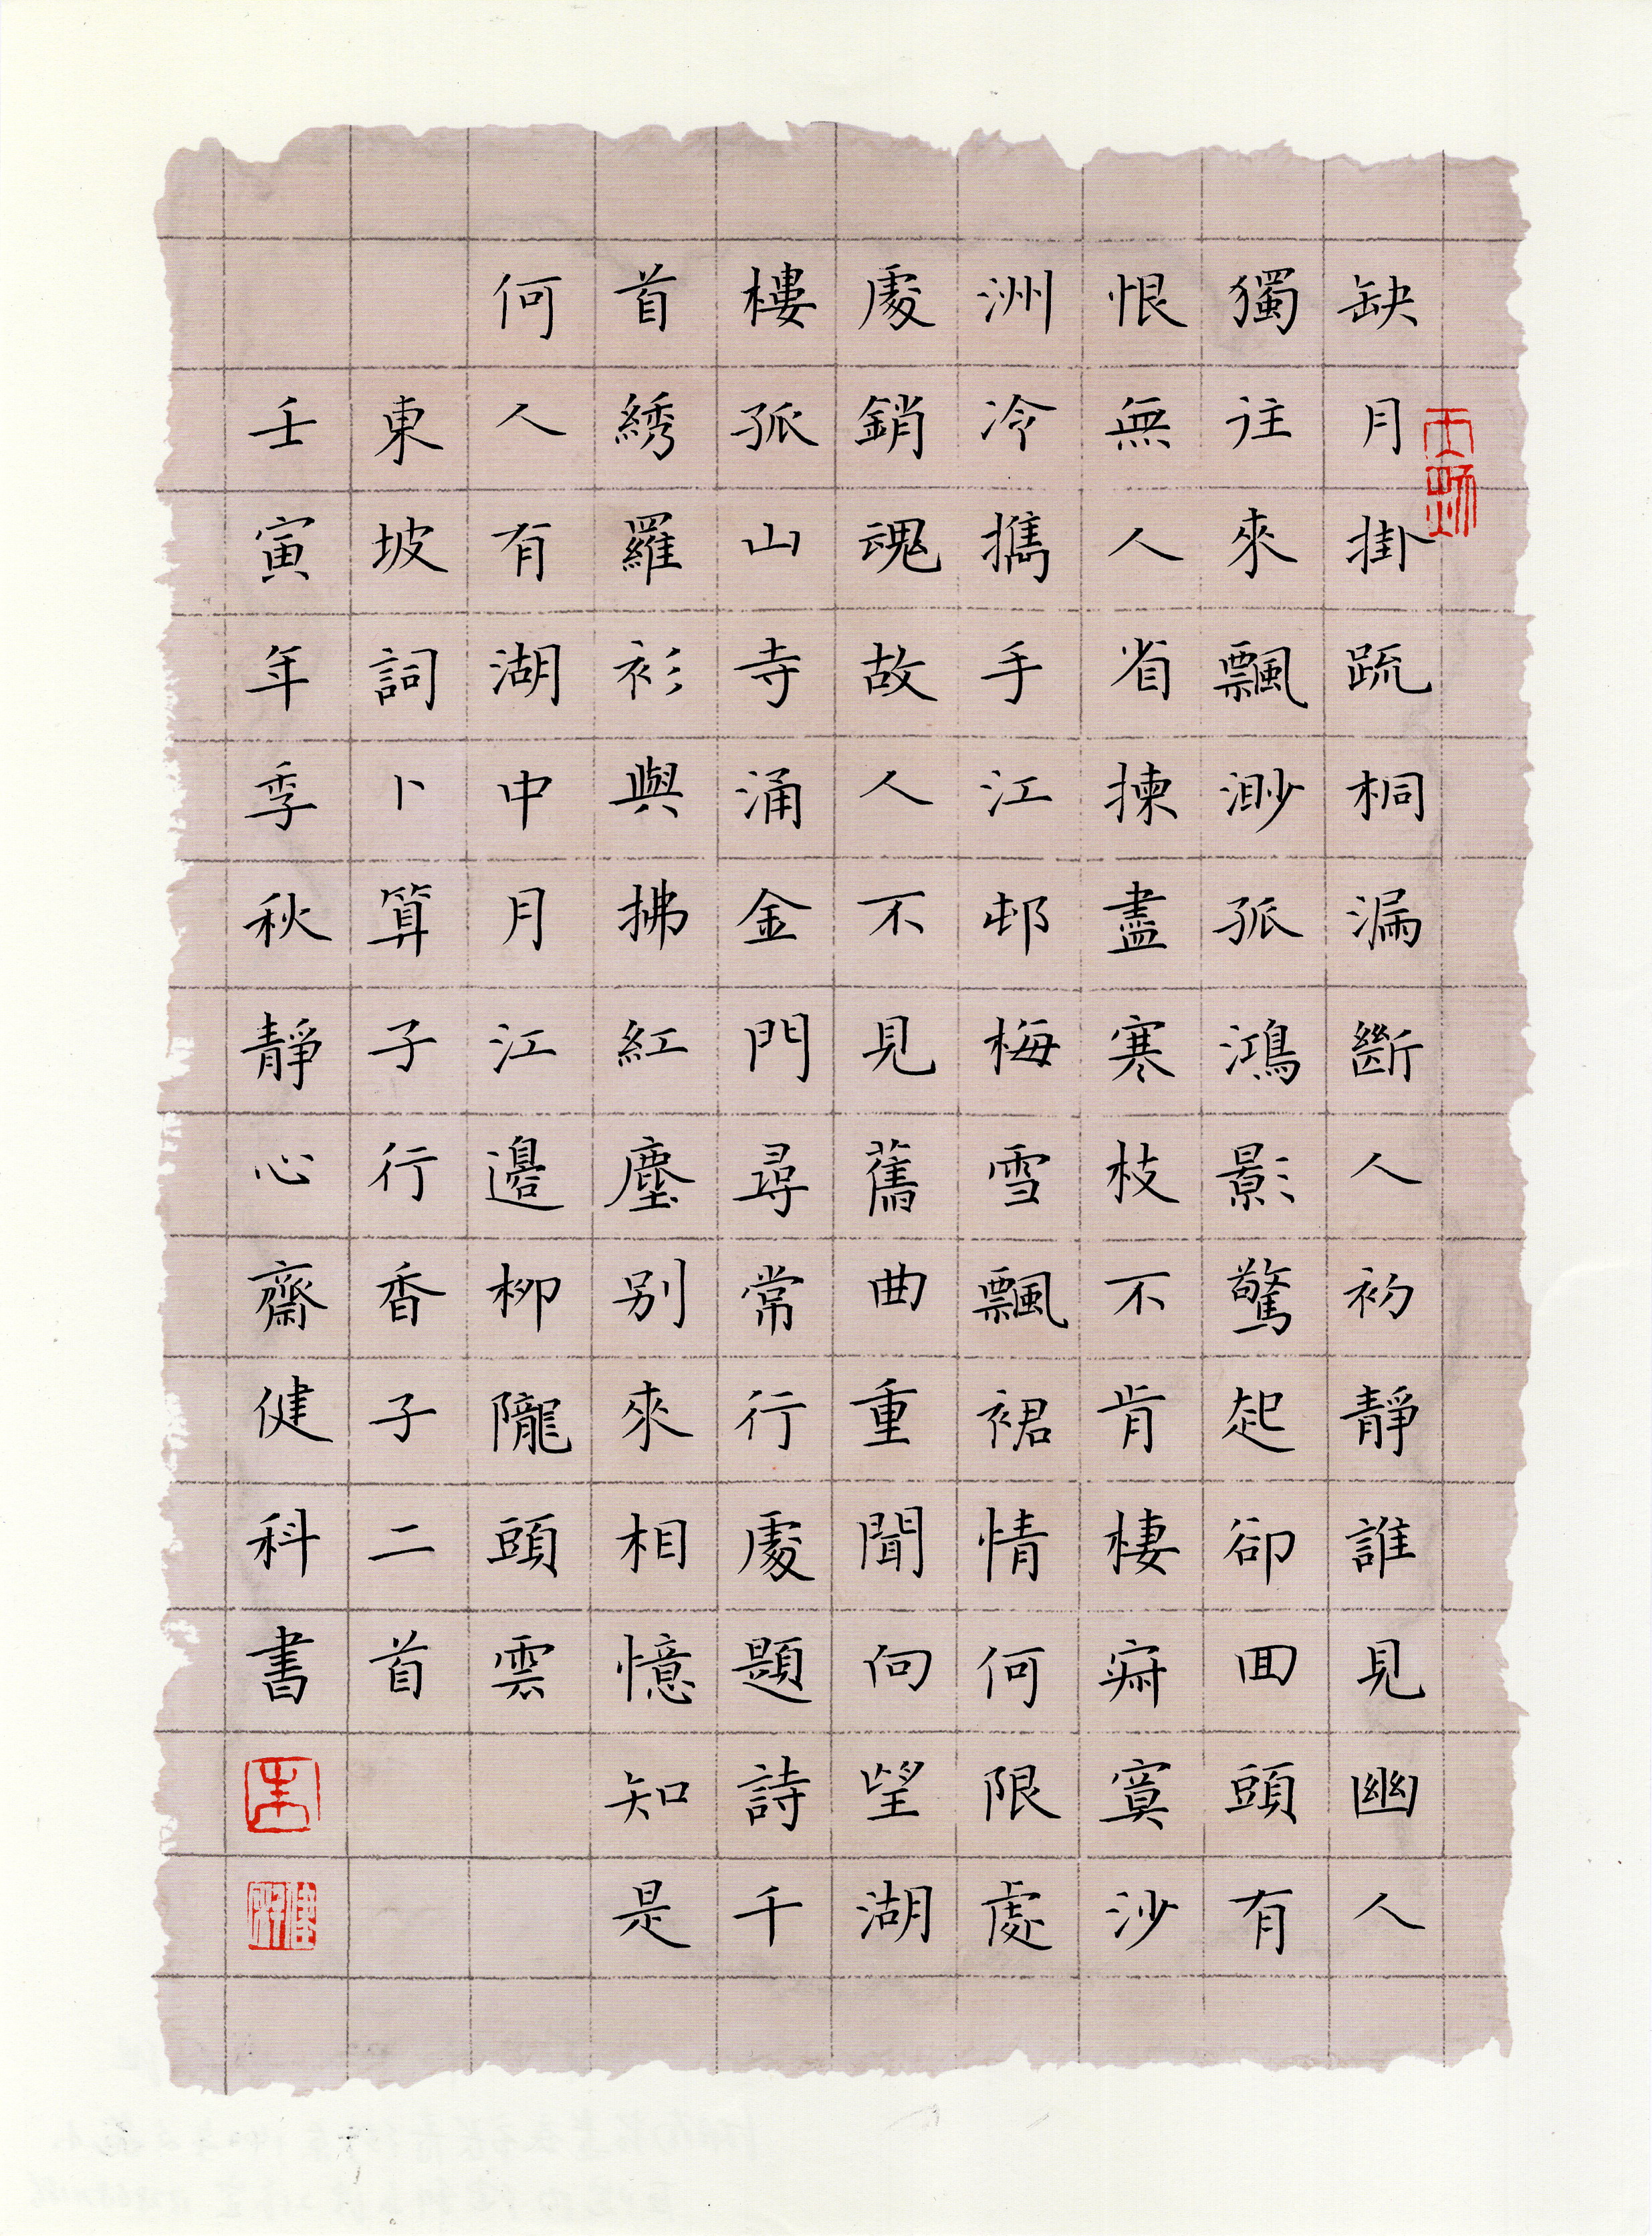 缺月掛疏桐漏斷人初靜誰見幽人
獨往來飄渺孤鴻影驚起卻回頭有
恨無人省揀盡寒枝不肯棲寂寞沙
洲冷攜手江邨梅雪飄裙情何限處
處銷魂故人不見舊曲重聞向望湖
樓孤山寺涌金門尋常行處題詩千
首綉羅衫與拂紅塵別來相憶知是
何人有湖中月江邊柳隴頭雲
東坡詞卜算子行香子二首
壬寅年季秋靜心齋健科書
朱
健科